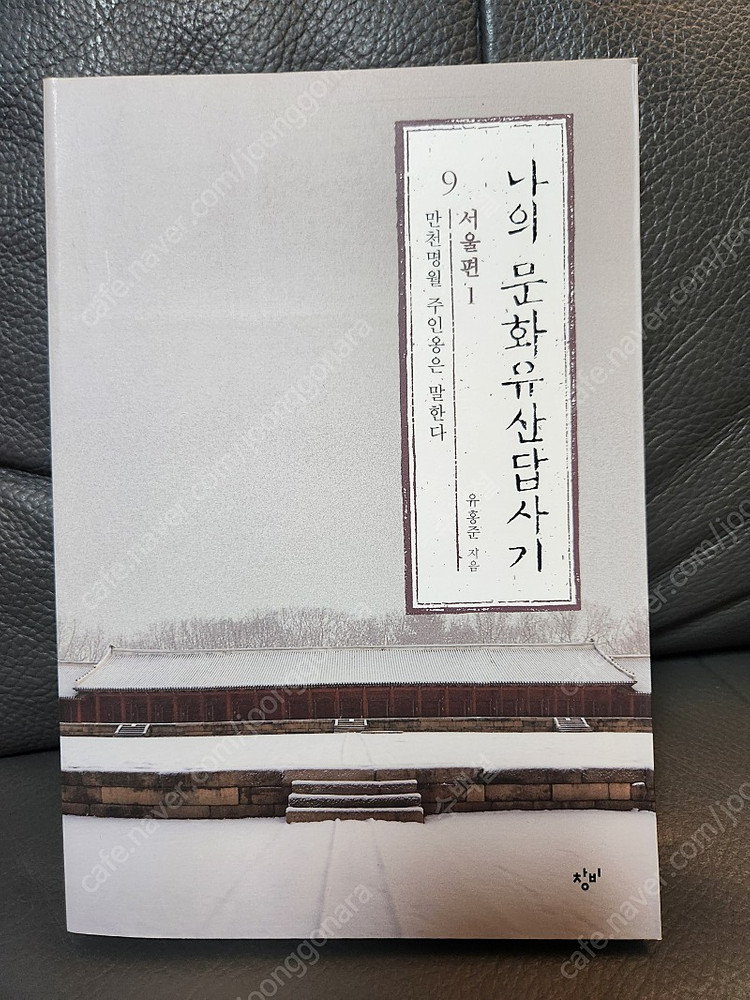 나의 문화유산답사기
9
서울편 1
만천명월 주인옹은 말한다
유홍준 지음
창비
cafe.naver.com/joonggonara